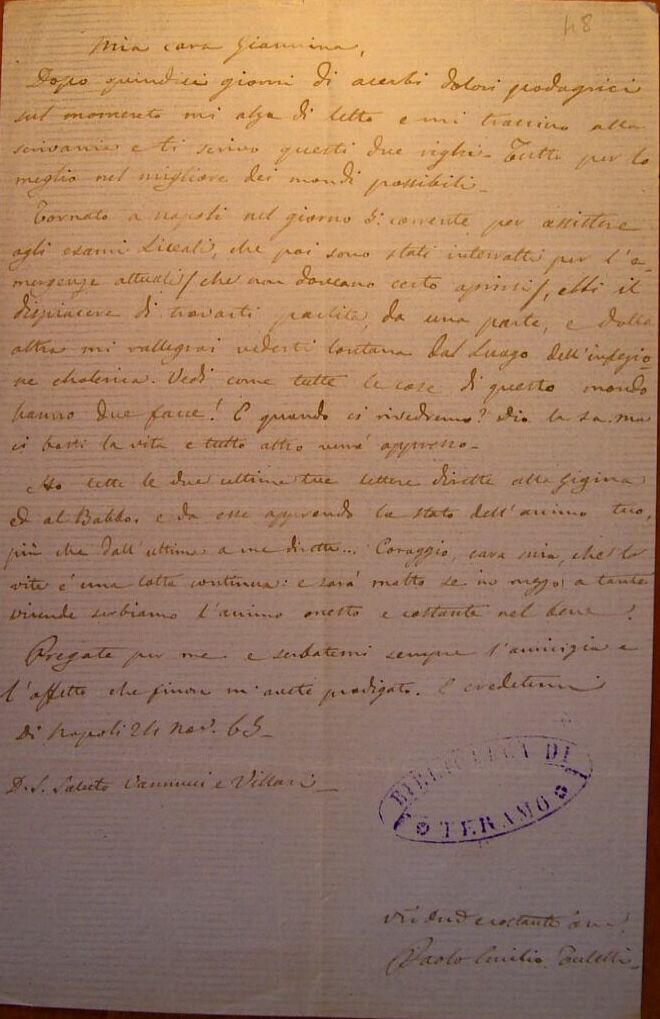 48
Mia cara Giannina,
Dopo quindici giorni di acerbi dolori podagrici
sul momento mi alzo di letto e mi trascino alla
scrivania e ti scrivo questi due righi. Tutto per lo
meglio nel migliore dei mondi possibili.
Tornato a Napoli nel giorno 3. corrente per assistere
agli esami Liceali, che poi sono stati interrotti per l'e-
mergenze attuali / che non doveano certo aprirsi /, ebbi il
dispiacere di trovarti partita, da una parte, e dalla
altra mi rallegrai vederti lontana dal luogo dell'infezio-
ne cholerica. Vedi come tutte le cose di questo mondo
hanno due facce! E quando ci rivedremo? Dio lo sa. ma
ci basti la vita e tutto altro verrà appresso.
Ho lette le due ultime tue lettere dirette alla Gigina
ed al Babbo, e da esse apprendo lo stato dell'animo tuo,
più che dall'ultima a me diretta... Coraggio, cara mia, chè la
vita è una lotta continua: e sarà molto se in mezzo a tante
vicende serbiamo l'animo onesto e costante nel bene!
Pregate per me e serbatemi sempre l'amicizia e
l'affetto che finora m'avete prodigato. E credetemi
Di Napoli 24 Nov. 65.
D. S. Saluto Vannucci e Villari
BIBLIOTECA DI
TERAMO
costante
Paolo Emilio Tulelli